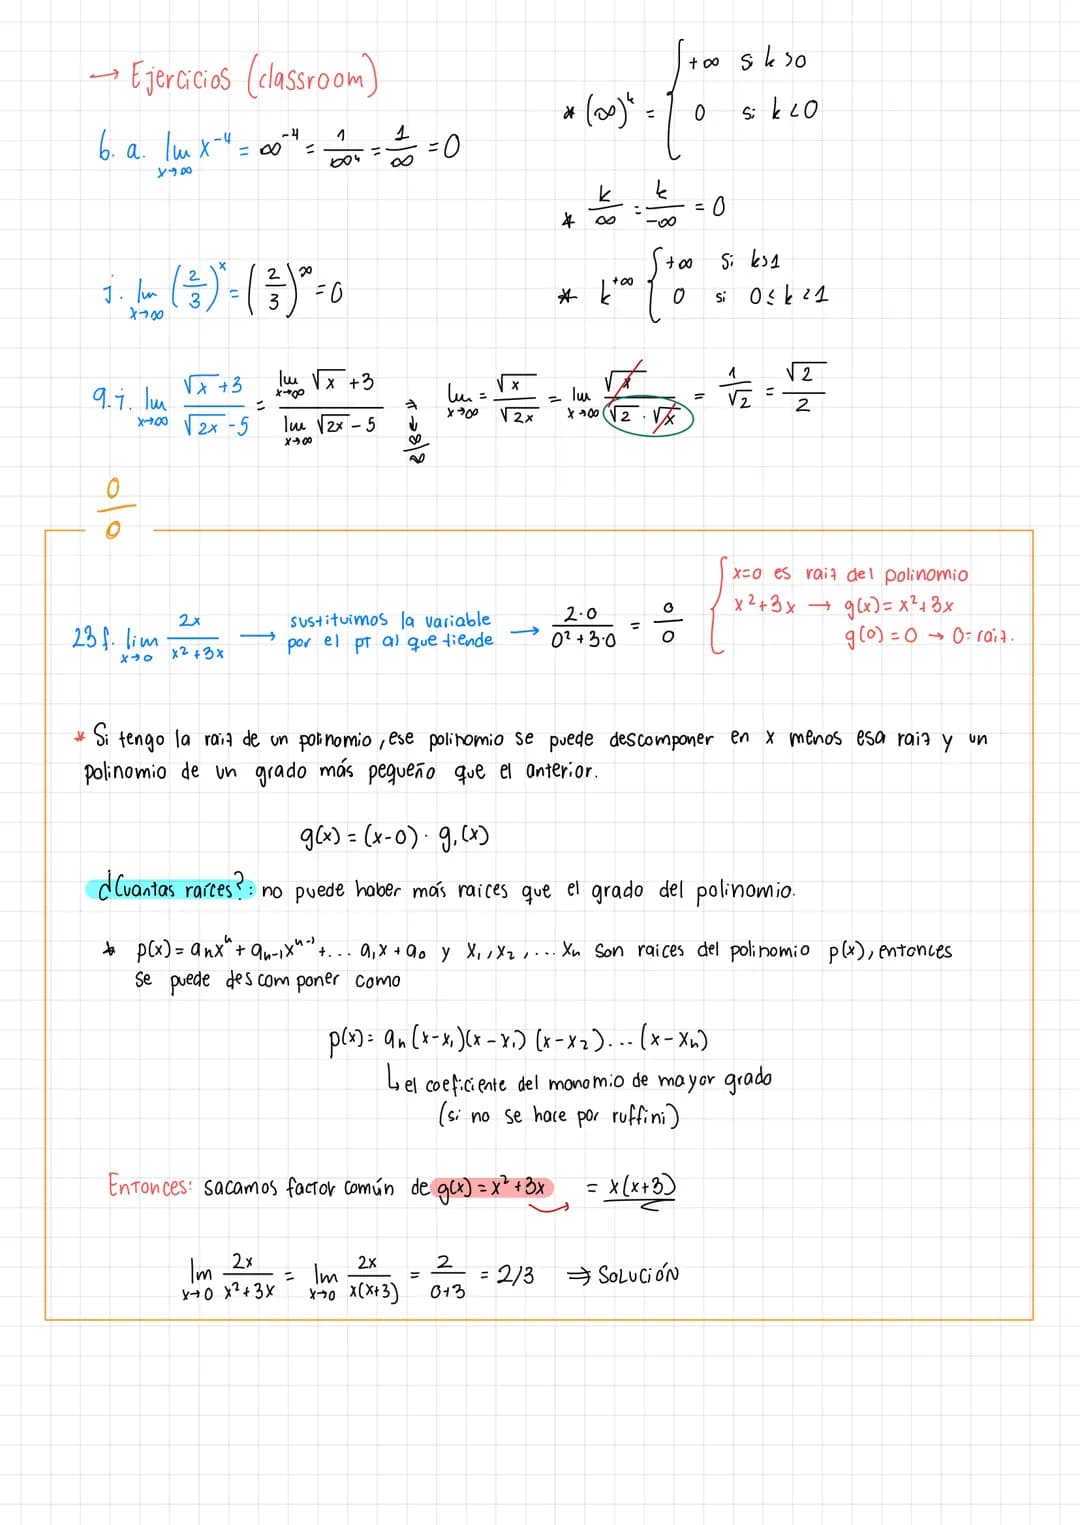 → Ejercicios (classroom)
* (∞)^k = { +∞ si k>0
0 si k<0
6. a. lim x→∞ x^-4 = ∞^-4 = 1/∞^4 = 1/∞ = 0
* k/∞ = k/-∞ = 0
j. lim x→∞ (2/3)^x = (2/3)^∞ = 0
* k^+∞ { +∞ si k>1
0 si 0≤k<1
9. i. lim x→∞ √x+3 / √2x -5 = lim x→∞ √x+3 / lim x→∞ √2x -5 → ∞/∞ lim x→∞ = √x/√2x = lim x→∞ √x/√2·√x = 1/√2 = √2/2
0/0
23 f. lim x→0 2x / x²+3x → sustituimos la variable por el pt al que tiende → 2·0 / 0²+3·0 = 0/0
{ x=0 es raiz del polinomio
x²+3x → g(x)= x²+3x
g(0)=0 → 0= raiz.
* Si tengo la raiz de un polinomio, ese polinomio se puede descomponer en x menos esa raiz y un
polinomio de un grado más pequeño que el anterior.
g(x) = (x-0) · g₁(x)
¿Cuantas raíces?: no puede haber más raices que el grado del polinomio.
* p(x) = aₙxⁿ + aₙ₋₁xⁿ⁻¹ + ... a₁x + a₀ y x₁, x₂, ... xₙ son raices del polinomio p(x), entonces
se puede descomponer como
p(x) = aₙ (x-x₁)(x-x₁) (x-x₂)... (x-xₙ)
↳ el coeficiente del monomio de mayor grado
(si no se hace por ruffini)
Entonces: sacamos factor común de g(x) = x²+3x = x(x+3)
lim x→0 2x / x²+3x = lim x→0 2x / x(x+3) = 2 / 0+3 = 2/3 ⇒ SOLUCIÓN